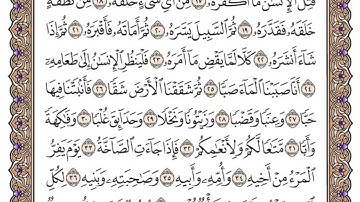 قُتِلَ ٱلْإِنسَٰنُ مَآ أَكْفَرَهُۥ ١٧ مِنْ أَىِّ شَىْءٍ خَلَقَهُۥ ١٨ مِن نُّطْفَةٍ
خَلَقَهُۥ فَقَدَّرَهُۥ ١٩ ثُمَّ ٱلسَّبِيلَ يَسَّرَهُۥ ٢٠ ثُمَّ أَمَاتَهُۥ فَأَقْبَرَهُۥ ٢١ ثُمَّ إِذَا
شَآءَ أَنشَرَهُۥ ٢٢ كَلَّا لَمَّا يَقْضِ مَآ أَمَرَهُۥ ٢٣ فَلْيَنظُرِ ٱلْإِنسَٰنُ إِلَىٰ طَعَامِهِۦٓ
٢٤ أَنَّا صَبَبْنَا ٱلْمَآءَ صَبًّا ٢٥ ثُمَّ شَقَقْنَا ٱلْأَرْضَ شَقًّا ٢٦ فَأَنۢبَتْنَا فِيهَا
حَبًّا ٢٧ وَعِنَبًا وَقَضْبًا ٢٨ وَزَيْتُونًا وَنَخْلًا ٢٩ وَحَدَآئِقَ غُلْبًا ٣٠ وَفَٰكِهَةً
وَأَبًّا ٣١ مَّتَٰعًا لَّكُمْ وَلِأَنْعَٰمِكُمْ ٣٢ فَإِذَا جَآءَتِ ٱلصَّآخَّةُ ٣٣ يَوْمَ يَفِرُّ
ٱلْمَرْءُ مِنْ أَخِيهِ ٣٤ وَأُمِّهِۦ وَأَبِيهِ ٣٥ وَصَٰحِبَتِهِۦ وَبَنِيهِ ٣٦ لِكُلِّ